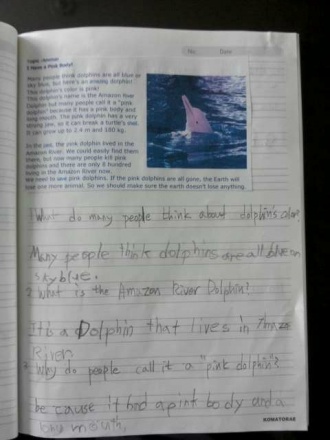 No.          Date
Topic: nonfict
I Have a Pink Body!
Many people think dolphins are all blue or
sky blue, but here's an amazing dolphin!
This dolphin's color is pink!
This dolphin's name is the Amazon River
Dolphin but many people call it a "pink
dolphin" because it has a pink body and
long mouth. The pink dolphin has a very
strong jaw, so it can break a turtle's shell.
It can grow up to 2.4 m and 180 kg.
In the past, the pink dolphin lived in the
Amazon River. We could easily find them
them, but now many people kill pink
dolphins and there are only 8 hundred
living in the Amazon River now.
We need to save pink dolphins. If the pink dolphins are all gone, the Earth will
lose one more animal. So we should make sure the earth doesn't lose anything.
1. What do many people think about dolphin's color
Many people think dolphins are all blue or
sky blue.
2. What is the Amazon River Dolphin?
It is a Dolphin that lives in Amazo
River
3. Why do people call it a "pink dolphin"?
be cause it had a pint body and a
long mouth.
KOMATORAE